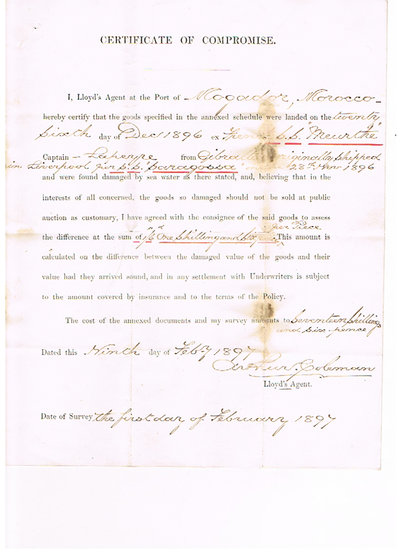 CERTIFICATE OF COMPROMISE.
I, Lloyd's Agent at the Port of Mogador, Morocco
hereby certify that the goods specified in the annexed schedule were landed on the twenty
sixth day of Dec 1896 ex French S.S. "Meurthe"
Captain - from Gibraltar originally shipped
in Liverpool per S.S. "Saragossa" 28th Nov 1896
and were found damaged by sea water as there stated, and, believing that in
the interests of all concerned, the goods so damaged should not be sold at public
auction as customary, I have agreed with the consignee of the said goods to assess
per Piece
the difference at the sum of One Shilling and This amount is
calculated on the difference between the damaged value of the goods and their
value had they arrived sound, and in any settlement with Underwriters is subject
to the amount covered by insurance and to the terms of the Policy.
The cost of the annexed documents and my survey amounts to Seventeen shillings
and six pence
Dated this Ninth day of Feby 1897
Arthur Coleman
Lloyd's Agent.
Date of Survey the first day of February 1897